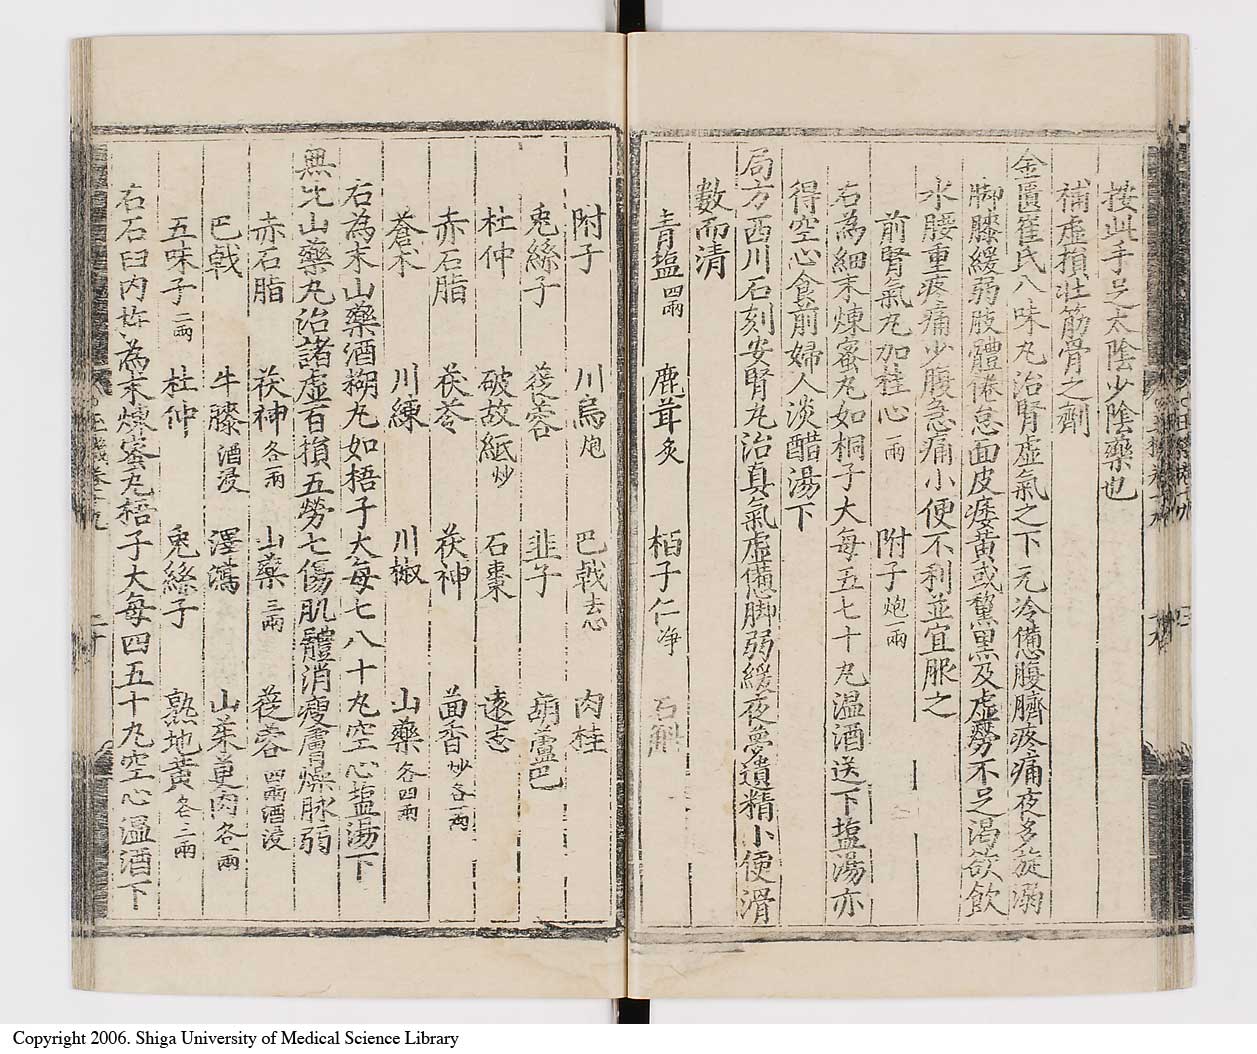 按此手足太陰少陰藥也
補虛損壯筋骨之劑
金匱崔氏八味丸治腎虛氣之下元冷憊腹臍疼痛夜多旋溺
脚膝緩弱肢體倦怠面皮痿黃或黧黑及虛勞不足渴欲飲
水腰重疼痛少腹急痛小便不利並宜服之
前腎氣丸加桂心一兩 附子炮一兩
右為細末煉蜜丸如桐子大每五七十丸溫酒送下塩湯亦
得空心食前婦人淡醋湯下
局方西川石刻安腎丸治真氣虛憊脚弱緩夜夢遺精小便滑
數而清
青塩四兩 鹿茸炙 栢子仁净 石斛
附子 川烏炮 巴戟去心 肉桂
兎絲子 蓯蓉 韭子 葫蘆巴
杜仲 破故紙炒 石棗 遠志
赤石脂 茯苓 茯神 茴香炒各一兩
蒼朮 川練 川椒 山藥各四兩
右為末山藥酒糊丸如梧子大每七八十丸空心塩湯下
無比山藥丸治諸虛百損五勞七傷肌體消瘦膚燥脉弱
赤石脂 茯神各一兩 山藥三兩 蓯蓉四兩酒浸
巴戟 牛膝酒浸 澤瀉 山茱萸肉各一兩
五味子二兩 杜仲 兎絲子 熟地黃各三兩
右石臼内杵為末煉蜜丸梧子大每四五十丸空心溫酒下
Copyright 2006. Shiga University of Medical Science Library